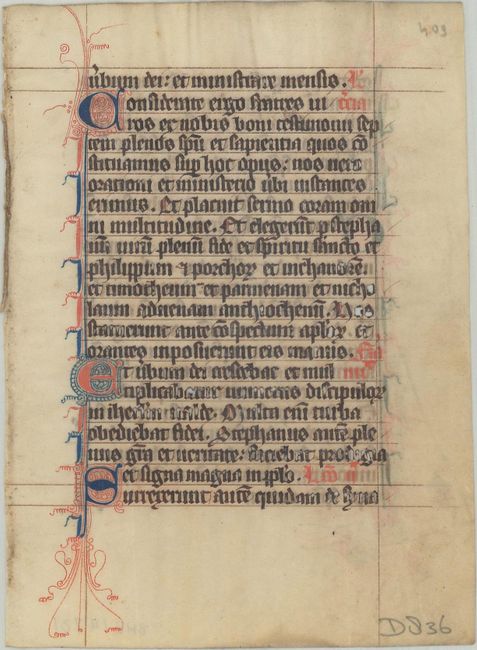 409
ūbum dei: et ministrare mensis.
Considerate ergo fratres vi
ros ex vobis boni testimonii sep
tem plenos spū et sapientia quos cō
stituamus sup hoc opus: nos vero
orationi et ministerio ūbi instantes
erimus. Et placuit sermo coram om
ni multitudine. Et elegerunt stepha
num virum plenum fide et spiritu sancto et
philippum et
et et parmenam et nicho
laum aduenam anthiochenum
statuerunt ante cōspectum aplōr et
orantes inposuerunt eis manus.
Et ūbum dei crescebat et mul
tiplicabatur numerus discipulor
in iherlm valde. Multa enī turba
obediebat fidei. Stephanus autē ple
nus grā et veritate: faciebat prodigia
et signa magna in pplo.
Surrexerunt autē quidam de syna
D836